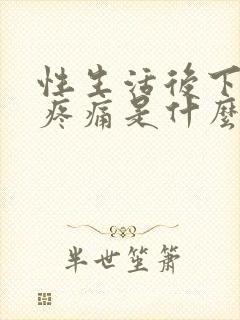 性生活後下
疼痛是什麼
半世笙簫